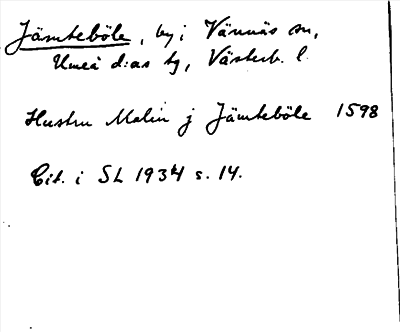 Jämteböle, by i Vännäs sn,
Umeå d:as tg, Västerb. l.
Hustru Malin j Jämteböle 1598
Cit. i SL 1934 s. 14.